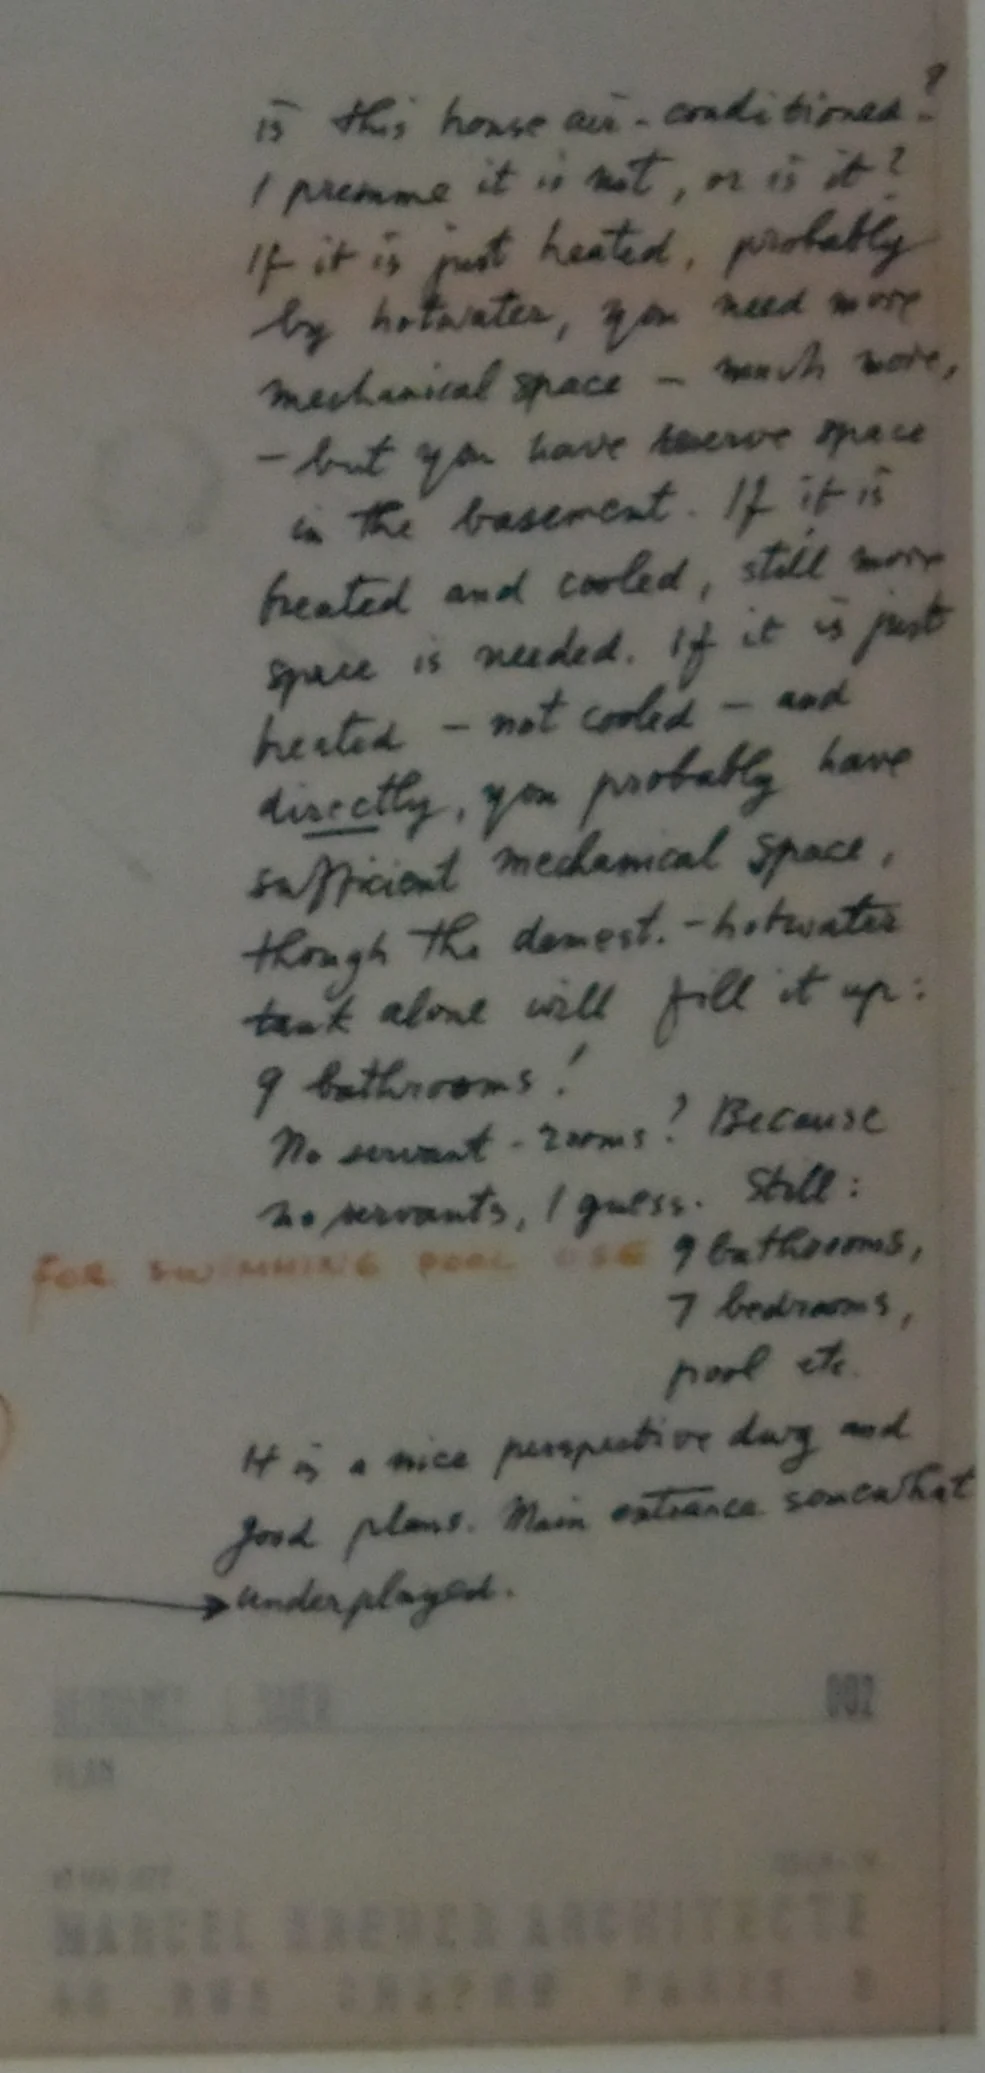 is this house air-conditioned?
I presume it is not, or is it?
If it is just heated, probably
by hotwater, you need more
mechanical space – much more,
– but you have reserve space
in the basement. If it is
heated and cooled, still more
space is needed. If it is just
heated – not cooled – and
directly, you probably have
sufficient mechanical space,
though the domest.-hotwater
tank alone will fill it up:
9 bathrooms!
No servant-rooms? Because
no servants, I guess. Still:
FOR SWIMMING POOL USE 9 bathrooms,
7 bedrooms,
pool etc.
It is a nice perspective dwg and
good plans. Main entrance somewhat
underplayed.
002
PLAN
MARCEL BREUER ARCHITECTE
48 RUE CHAPON PARIS 3